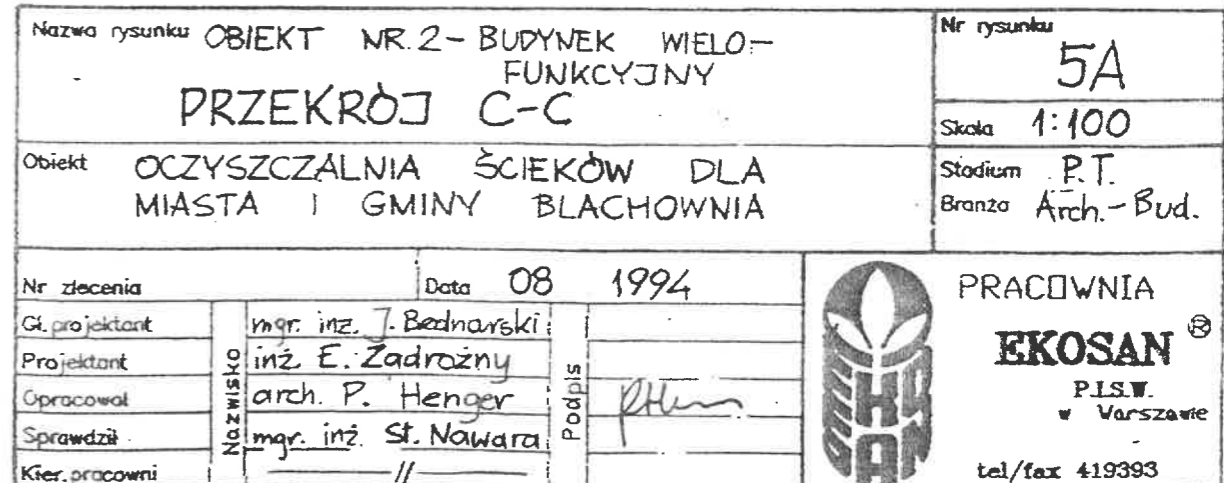 Nazwa rysunku OBIEKT NR.2-BUDYNEK WIELO-
FUNKCYJNY
PRZEKRÓJ C-C
Nr rysunku
5A
Skala 1:100
Obiekt OCZYSZCZALNIA ŚCIEKÓW DLA
MIASTA I GMINY BLACHOWNIA
Stadium P.T.
Branża Arch.-Bud.
Nr zlecenia
Data 08 1994
Gł. projektant
Projektant
Opracował
Sprawdził
Kier. pracowni
Nazwisko
mgr. inż. J. Bednarski
inż. E. Zadrożny
arch. P. Henger
mgr. inż. St. Nawara
—//—
Podpis
EKOSAN
PRACOWNIA
EKOSAN ®
P.I.S.W.
w Warszawie
tel/fax 419393